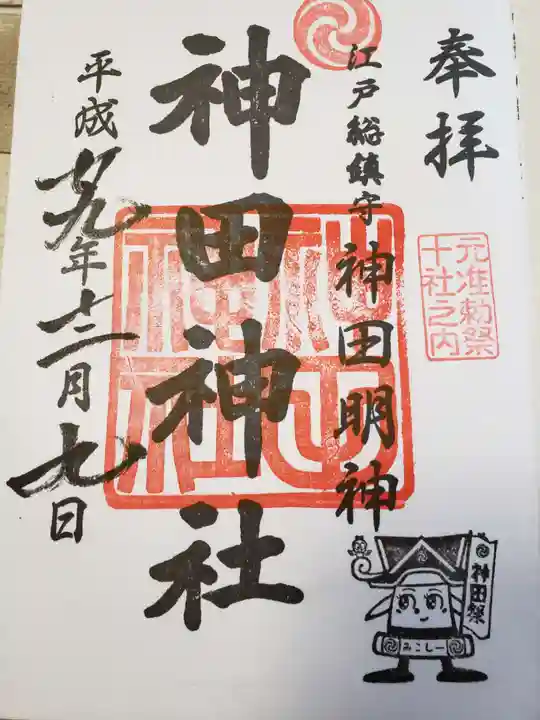 奉拝
元准勅祭
十社之内
江戸総鎮守 神田明神
神田神社
神田神社
平成廿九年十二月九日
神田祭
みこしー